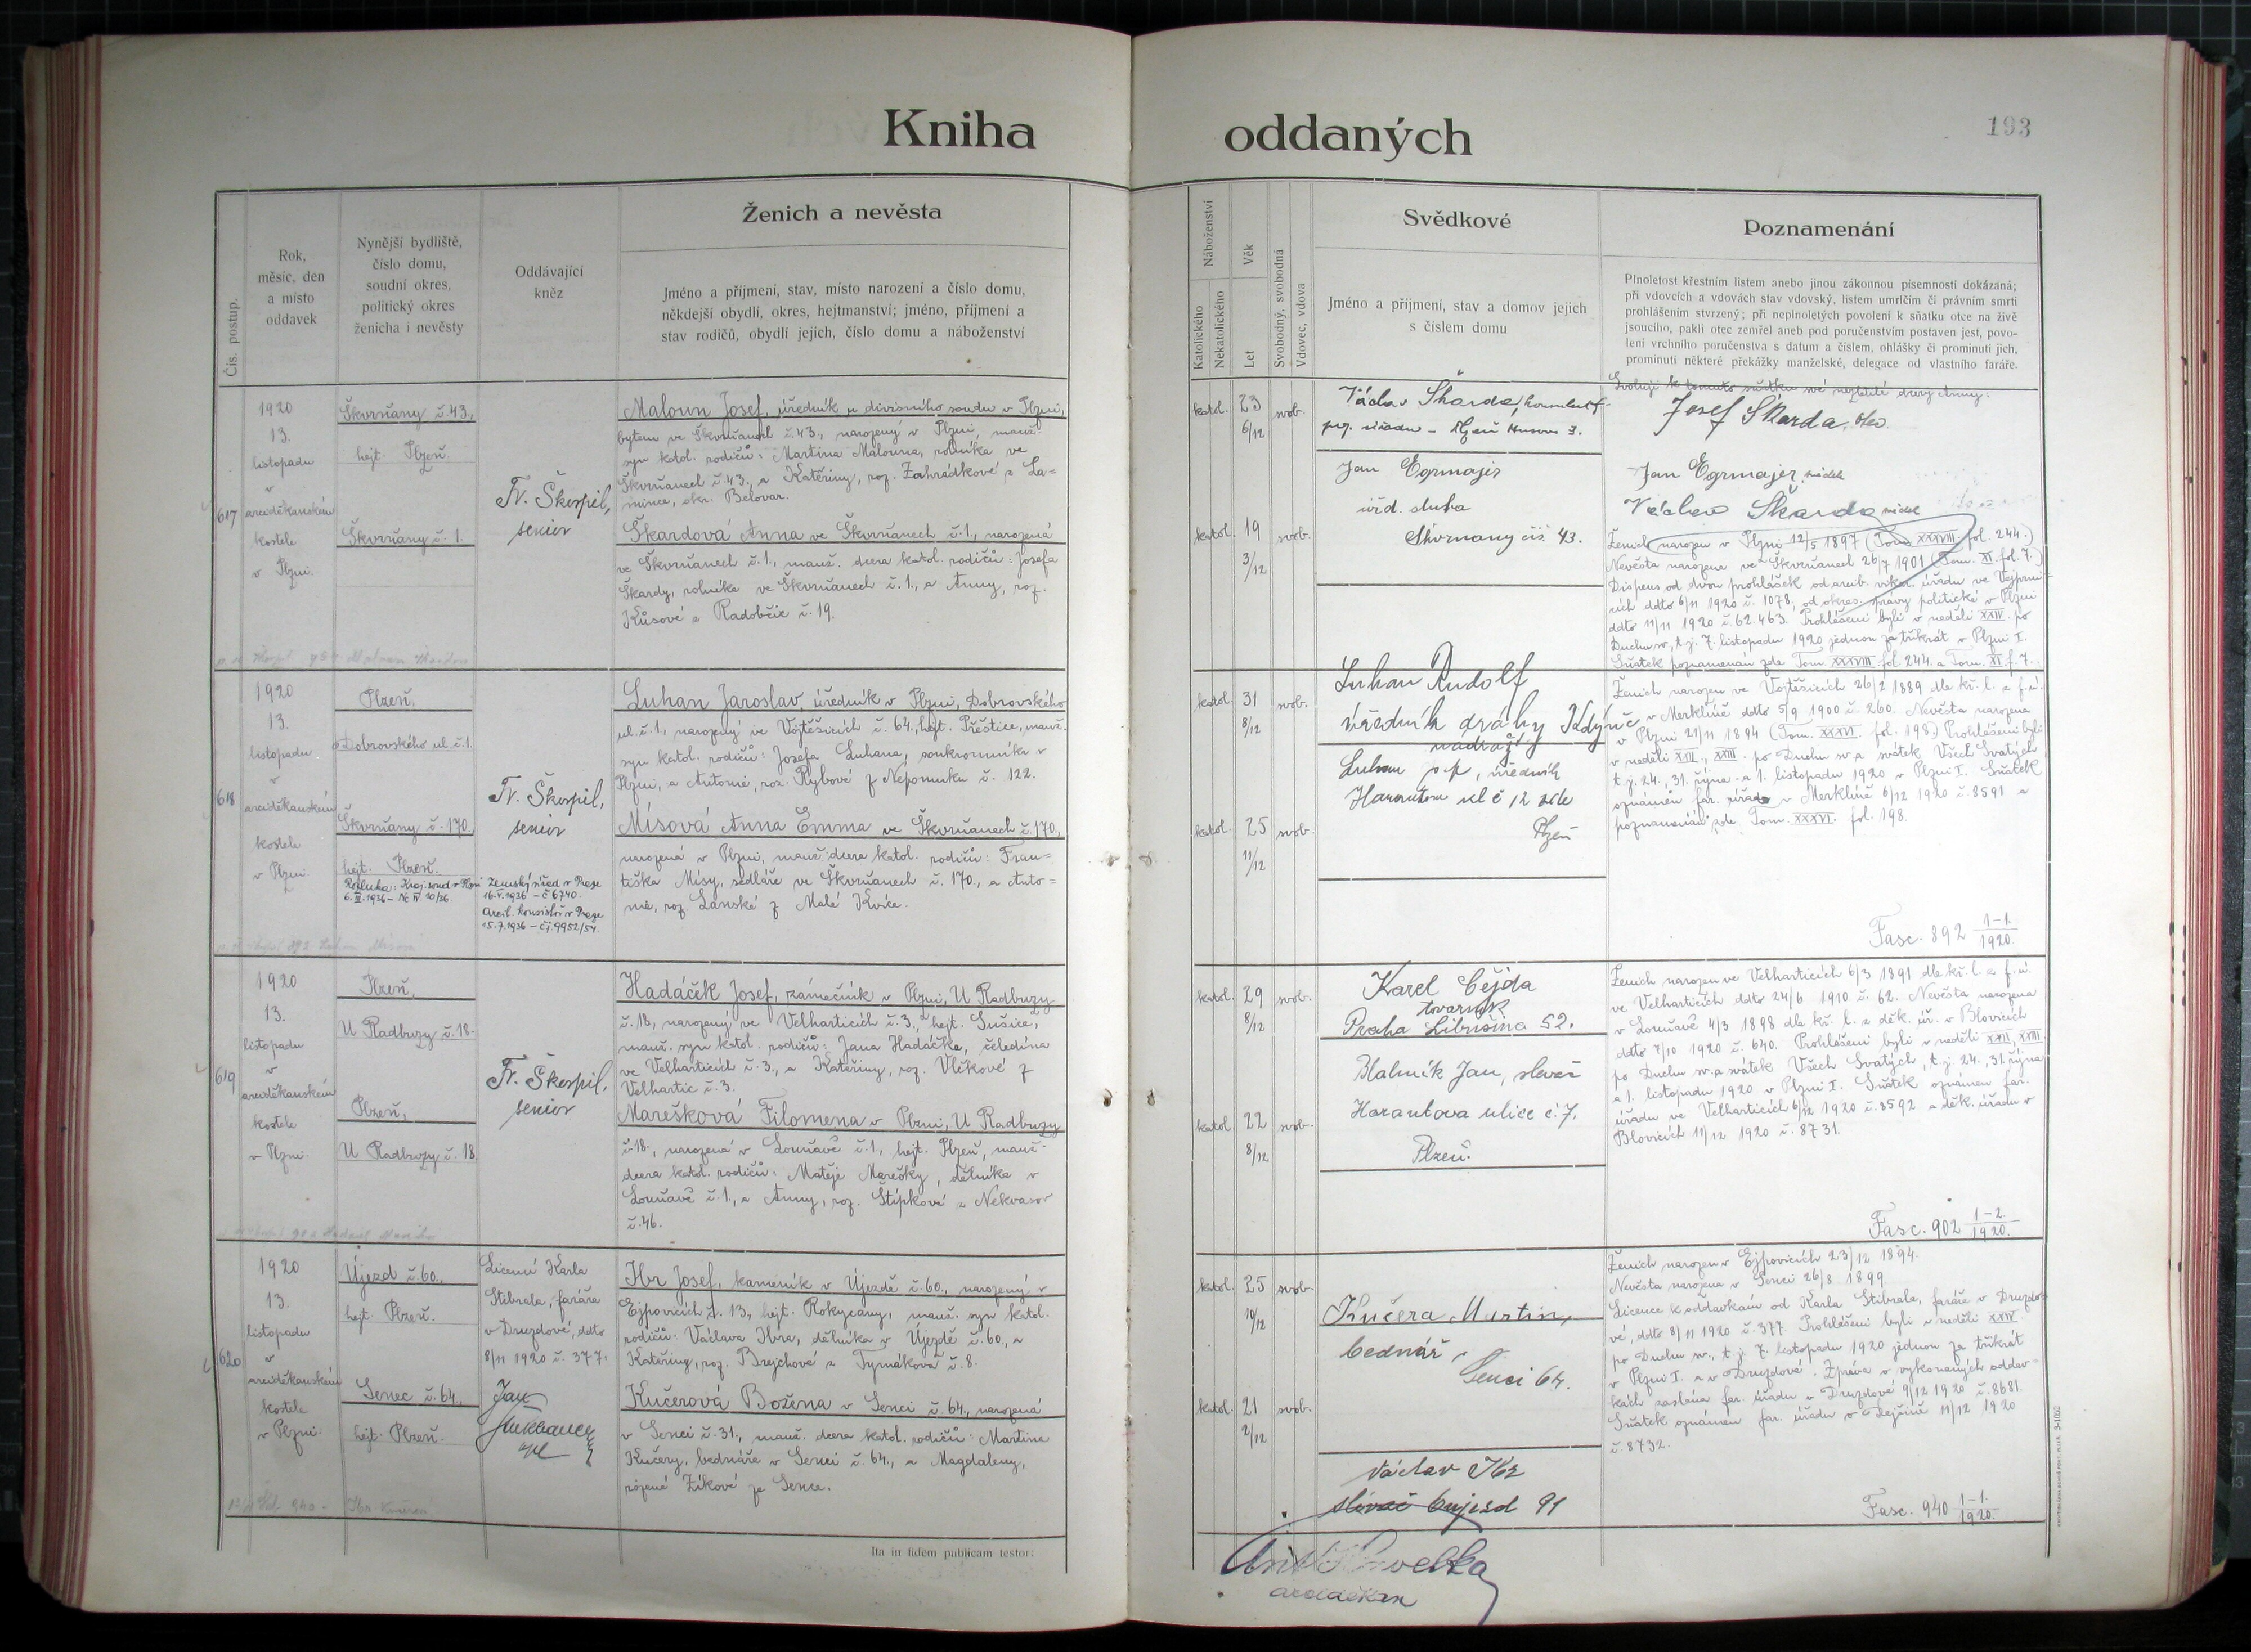 Kniha
oddaných
193
Čís. postup.
Rok,
měsíc, den
a místo
oddavek
Nynější bydliště,
číslo domu,
soudní okres,
politický okres
ženicha i nevěsty
Oddávající
kněz
Ženich a nevěsta
Jméno a příjmení, stav, místo narození a číslo domu,
někdejší obydlí, okres, hejtmanství; jméno, příjmení a
stav rodičů, obydlí jejich, číslo domu a náboženství
Náboženství
Katolického
Nekatolického
Věk
Let
Svobodný, svobodná
Vdovec, vdova
Svědkové
Jméno a příjmení, stav a domov jejich
s číslem domu
Poznamenání
Plnoletost křestním listem anebo jinou zákonnou písemností dokázaná;
při vdovcích a vdovách stav vdovský, listem umrlčím či právním smrti
prohlášením stvrzený; při neplnoletých povolení k sňatku otce na živě
jsoucího, pakli otec zemřel aneb pod poručenstvím postaven jest, povo-
lení vrchního poručenstva s datum a číslem, ohlášky či prominutí jich,
prominutí některé překážky manželské, delegace od vlastního faráře.
617
1920
13.
listopadu
v
arciděkanském
kostele
v Plzni.
Škvrňany č. 43.,
hejt. Plzeň.
Škvrňany č. 1.
Fr. Škorpil,
senior
Maloun Josef, úředník u divisního soudu v Plzni,
bytem ve Škvrňanech č. 43., narozený v Plzni, manž.
syn katol. rodičů: Martina Malouna, rolníka ve
Škvrňanech č. 43., a Kateřiny, roz. Zahrádkové z La=
mince, okr. Belovar.
Škardová Anna ve Škvrňanech č. 1., narozená
ve Škvrňanech č. 1., manž. dcera katol. rodičů: Josefa
Škardy, rolníka ve Škvrňanech č. 1., a Anny, roz.
Kůsové z Radobčic č. 19.
katol. 23 svob.
6/12
katol. 19 svob.
3/12
Václav Škarda, konsulent
Plzeň Husova 3.
Jan Egrmajer
úřd. sluha
Škvrnany čís. 43.
Svoluji k tomuto sňatku své nezletilé dcery Anny:
Josef Škarda, otec
Jan Egrmajer, svědek
Václav Škarda svědek
Ženich narozen v Plzni 12/5 1897 (Tom. XXXVIII. fol. 244.)
Nevěsta narozena ve Škvrňanech 26/7 1901 (Tom. XI. fol. 7.)
Dispens od dvou prohlášek od arcib. vikar. úřadu ve Vejprni=
cích ddto 6/11 1920 č. 1078, od okres. správy politické v Plzni
ddto 11/11 1920 č. 62.463. Prohlášeni byli v neděli XXIV. po
Duchu sv., t. j. 7. listopadu 1920 jednou za třikrát v Plzni I.
Sňatek poznamenán zde Tom. XXXVIII. fol. 244. a Tom. XI. f. 7.
618
1920
13.
listopadu
v
arciděkanském
kostele
v Plzni.
Plzeň,
Dobrovského ul. č. 1.
Škvrňany č. 170.,
hejt. Plzeň.
Rozluka: Kraj. soud v Plzni
Nč IV. 10/36.
Fr. Škorpil,
senior
Zemský úřad v Praze
16.V.1936 – č 6740.
Arcib. konsistoř v Praze
15.7.1936 – čj. 9952/54
Luhan Jaroslav, úředník v Plzni, Dobrovského
ul. č. 1., narozený ve Vojtěšicích č. 64., hejt. Přeštice, manž.
syn katol. rodičů: Josefa Luhana, soukromníka v
Plzni, a Antonie, roz. Rybové z Nepomuku č. 122.
Mísová Anna Emma ve Škvrňanech č. 170.,
narozená v Plzni, manž. dcera katol. rodičů: Fran=
tiška Mísy, sedláře ve Škvrňanech č. 170., a Anto=
nie, roz. Lánské z Malé Kvíce.
katol. 31 svob.
8/12
katol. 25 svob.
11/12
Luhan Rudolf
úředník dráhy Kdýně
nádraží
Luhan úředník
Harantova ul č 12
Plzeň
Ženich narozen ve Vojtěšicích 26/2 1889 dle kř. l. z f. ú.
v Merklíně ddto 5/9 1900 č. 260. Nevěsta narozena
v Plzni 21/11 1894 (Tom. XXXVI. fol. 198.) Prohlášeni byli
v neděli XXII., XXIII. po Duchu sv. a svátek Všech Svatých
t. j. 24., 31. října a 1. listopadu 1920 v Plzni I. Sňatek
oznámen far. úřadu v Merklíně 6/12 1920 č. 8591 a
poznamenán zde Tom. XXXVI. fol. 198.
Fasc. 892 1–1./1920.
619
1920
13.
listopadu
v
arciděkanském
kostele
v Plzni.
Plzeň,
U Radbuzy č. 18.
Plzeň,
U Radbuzy č. 18.
Fr. Škorpil,
senior
Hadáček Josef, zámečník v Plzni, U Radbuzy
č. 18, narozený ve Velharticích č. 3., hejt. Sušice,
manž. syn katol. rodičů: Jana Hadáčka, čeledína
ve Velharticích č. 3., a Kateřiny, roz. Vlčkové z
Velhartic č. 3.
Marešková Filomena v Plzni, U Radbuzy
č. 18., narozená v Louňavě č. 1., hejt. Plzeň, manž.
dcera katol. rodičů: Matěje Marešky, dělníka v
Louňavě č. 1., a Anny, roz. Štípkové z Nekvasov
č. 46.
katol. 29 svob.
8/12
katol 22 svob.
8/12
Karel Čejda
tovarník
Praha Libušina 52.
Blahník Jan, slevač
Harantova ulice č. 7.
Plzeň.
Ženich narozen ve Velharticích 6/3 1891 dle kř. l. z f. ú.
ve Velharticích ddto 24/6 1910 č. 62. Nevěsta narozena
v Louňavě 4/3 1898 dle kř. l. z děk. úř. v Blovicích
ddto 7/10 1920 č. 640. Prohlášeni byli v neděli XXII., XXIII.
po Duchu sv. a svátek Všech Svatých, t. j. 24., 31. října
a 1. listopadu 1920 v Plzni I. Sňatek oznámen far.
úřadu ve Velharticích 6/12 1920 č. 8592 a děk. úřadu v
Blovicích 11/12 1920 č. 8731.
Fasc. 902 1–2./1920.
620
1920
13.
listopadu
v
arciděkanském
kostele
v Plzni.
Újezd č. 60.,
hejt. Plzeň.
Senec č. 64.,
hejt. Plzeň.
Licencí Karla
Stibrala, faráře
v Druzdové, ddto
8/11 1920 č. 377.
Jan
Ibr Josef, kameník v Újezdě č. 60., narozený v
Ejpovicích č. 13., hejt. Rokycany, manž. syn katol.
rodičů: Václava Ibra, dělníka v Újezdě č. 60., a
Kateřiny, roz. Brejchové z Tymákova č. 8.
Kučerová Božena v Senci č. 64., narozená
v Senci č. 31., manž. dcera katol. rodičů: Martina
Kučery, bednáře v Senci č. 64., a Magdaleny,
rozené Zíkové ze Sence.
katol. 25 svob.
10/12
katol. 21 svob.
2/12
Kučera Martin,
bednář
Senci 64.
Václav Ibr
slévač Oujezd 91
Ženich narozen v Ejpovicích 23/12 1894.
Nevěsta narozena v Senci 26/8 1899.
Licence k oddavkám od Karla Stibrala, faráře v Druzdo=
vé, ddto 8/11 1920 č. 377. Prohlášeni byli v neděli XXIV.
po Duchu sv., t. j. 7. listopadu 1920 jednou za třikrát
v Plzni I. a v Druzdové. Zpráva o vykonaných oddav=
kách zaslána far. úřadu v Druzdové 9/12 1920 č. 8681.
Sňatek oznámen far. úřadu v Dejšině 11/12 1920
č. 8732.
Fasc. 940 1–1./1920.
Ita in fidem publicam testor:
Ant. Havelka
arciděkan